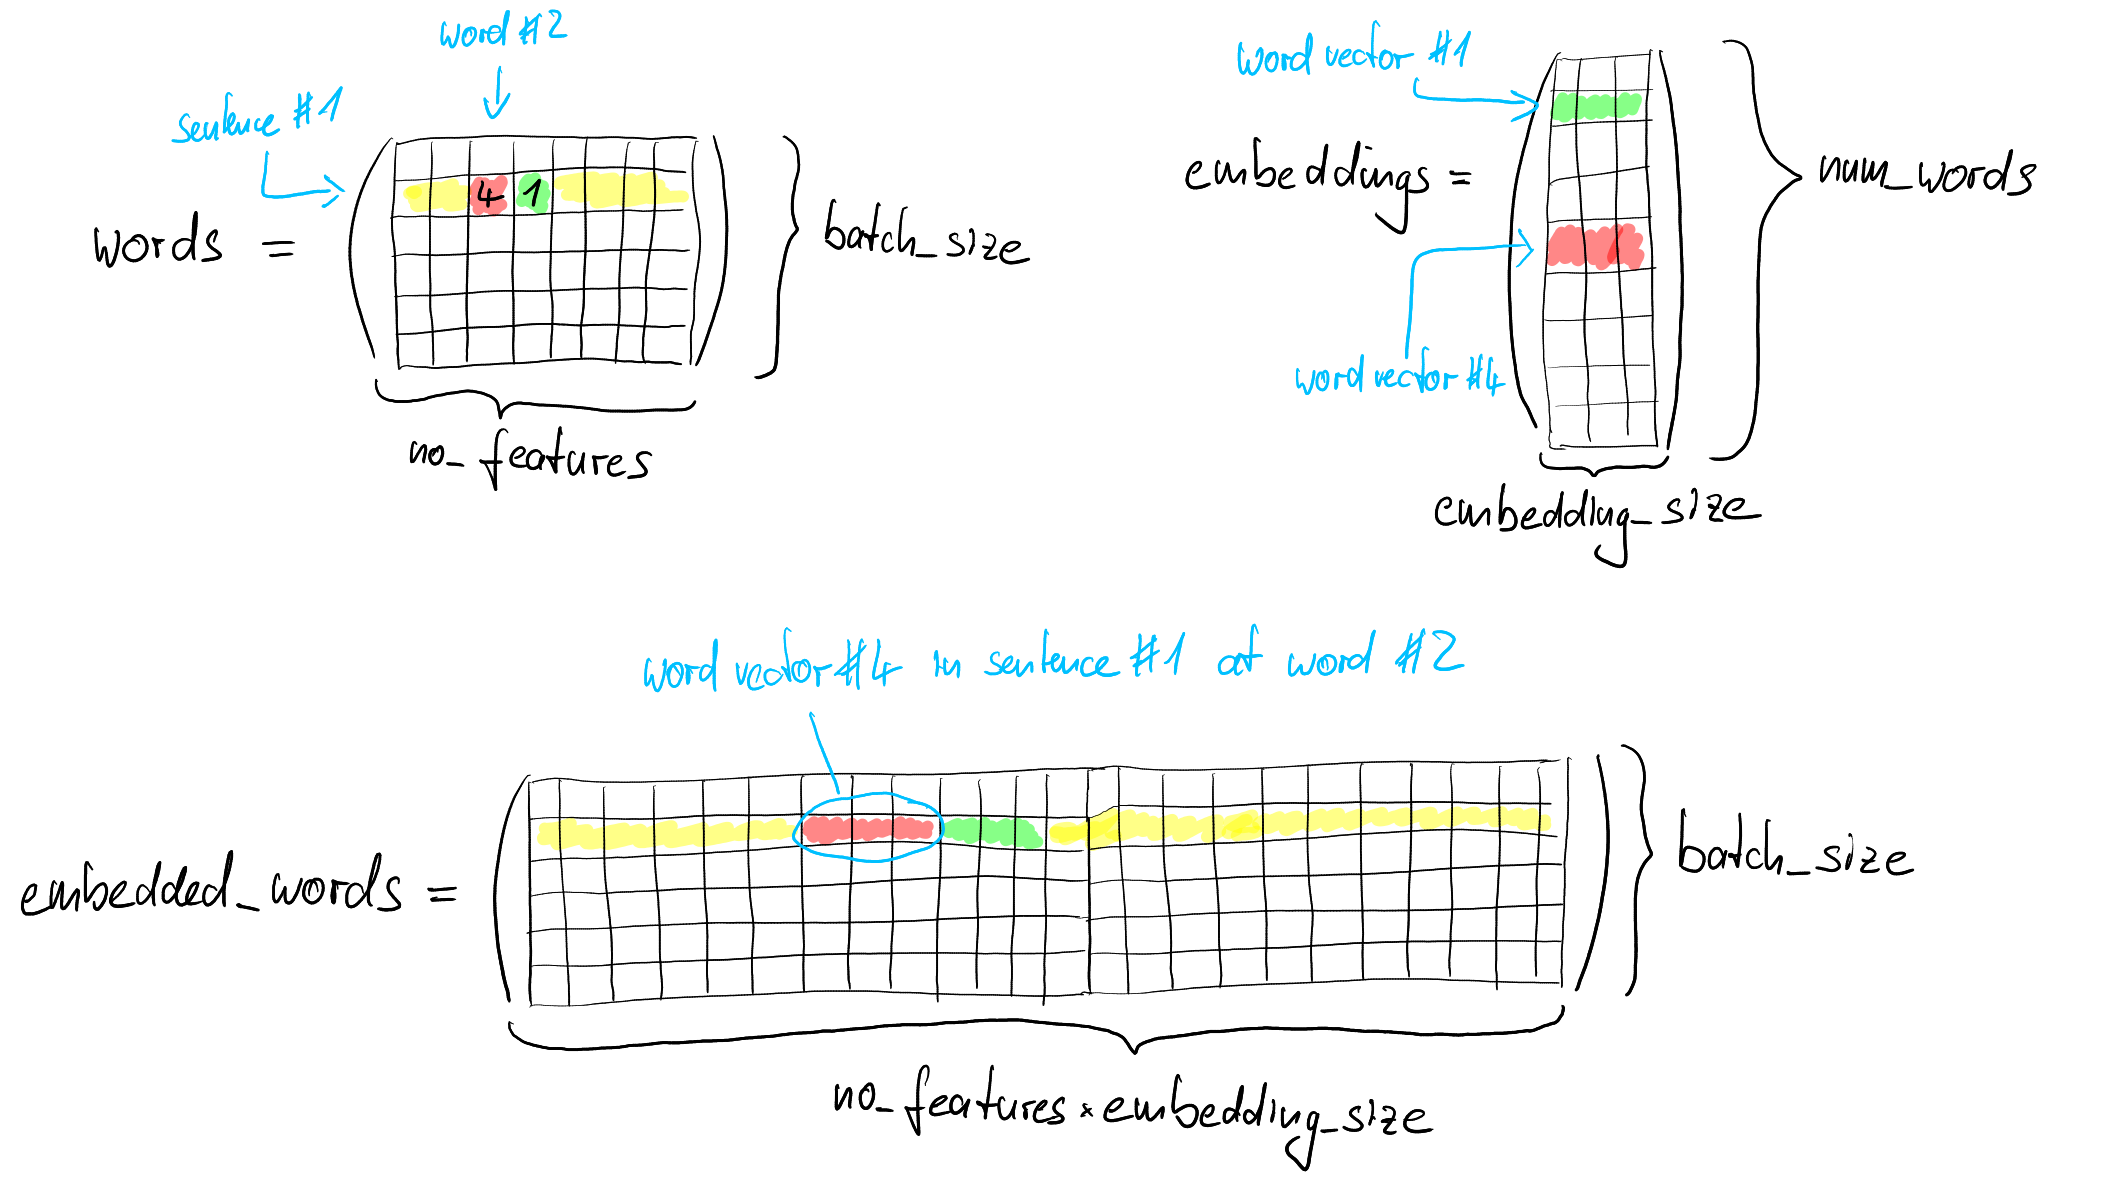 word #2
sentence #1
words =
4 1
batch_size
no_features
word vector #1
embeddings =
num_words
word vector #4
embedding_size
word vector #4 in sentence #1 at word #2
embedded_words =
batch_size
no_features * embedding_size